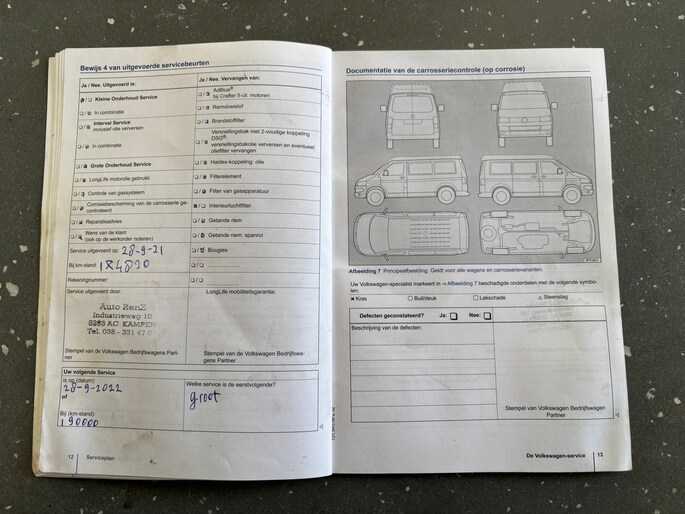 Bewijs 4 van uitgevoerde servicebeurten
Ja / Nee. Uitgevoerd is:
Kleine Onderhoud Service
In combinatie
Interval Service
Inclusief olie verversen
In combinatie
Grote Onderhoud Service
LongLife motorolie gebruikt
Controle van gassysteem
Corrosiebescherming van de carrosserie ge-
controleerd
Reparatieadvies
Wens van de klant
(ook op de werkorder noteren)
Service uitgevoerd op: 28-9-21
Bij km-stand: 184820
Rekeningnummer:
Service uitgevoerd door:
Auto RenZ
Industrieweg 10
8263 AC KAMPEN
Tel. 038 - 331 47 6
Stempel van de Volkswagen Bedrijfswagens Part-
ner
Ja / Nee. Vervangen van:
AdBlue®
bij Crafter 5-cil. motoren
Remvloeistof
Brandstoffilter
Versnellingsbak met 2-voudige koppeling
DSG®:
versnellingsbakolie verversen en eventueel
oliefilter vervangen
Haldex-koppeling: olie
Filterelement
Filter van gasapparatuur
Interieurluchtfilter
Getande riem
Getande riem: spanrol
Bougies
LongLife mobiliteitsgarantie:
Stempel van de Volkswagen Bedrijfswa-
gens Partner
Uw volgende Service
Is op (datum)
28-9-2022
of
Bij (km-stand):
190000
Welke service is de eerstvolgende?
groot
12 Serviceplan
Documentatie van de carrosseriecontrole (op corrosie)
Afbeelding 7 Principeafbeelding. Geldt voor alle wagens en carrosserievarianten.
Uw Volkswagen-specialist markeert in ⇒ Afbeelding 7 beschadigde onderdelen met de volgende symbo-
len:
× Kras ○ Buil/deuk □ Lakschade △ Steenslag
Defecten geconstateerd? Ja: ❑ Nee: ❑
Beschrijving van de defecten:
Stempel van Volkswagen Bedrijfswagen
Partner
De Volkswagen-service 13